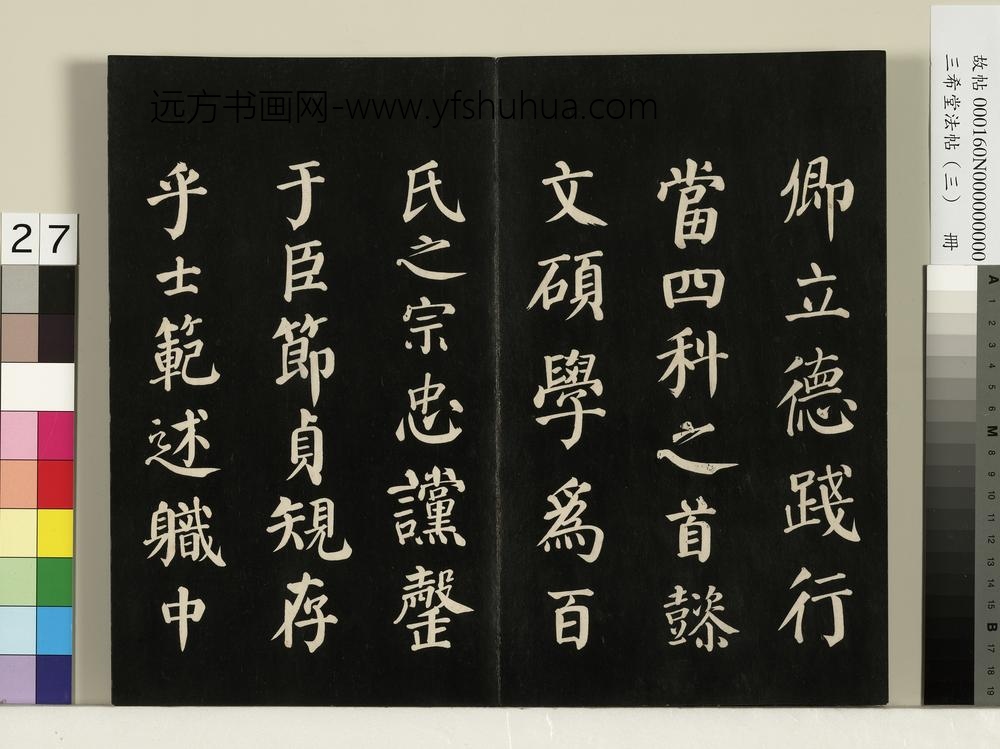 远方书画网-www.yfshuhua.com
卿立德踐行
當四科之首懿
文碩學爲百
氏之宗忠讜罄
于臣節貞䂓存
乎士範述軄中
故帖 000160N000000000
三希堂法帖(三) 冊
27
A 1 2 3 4 5 6 M 8 9 10 11 12 13 14 15 B 17 18 19